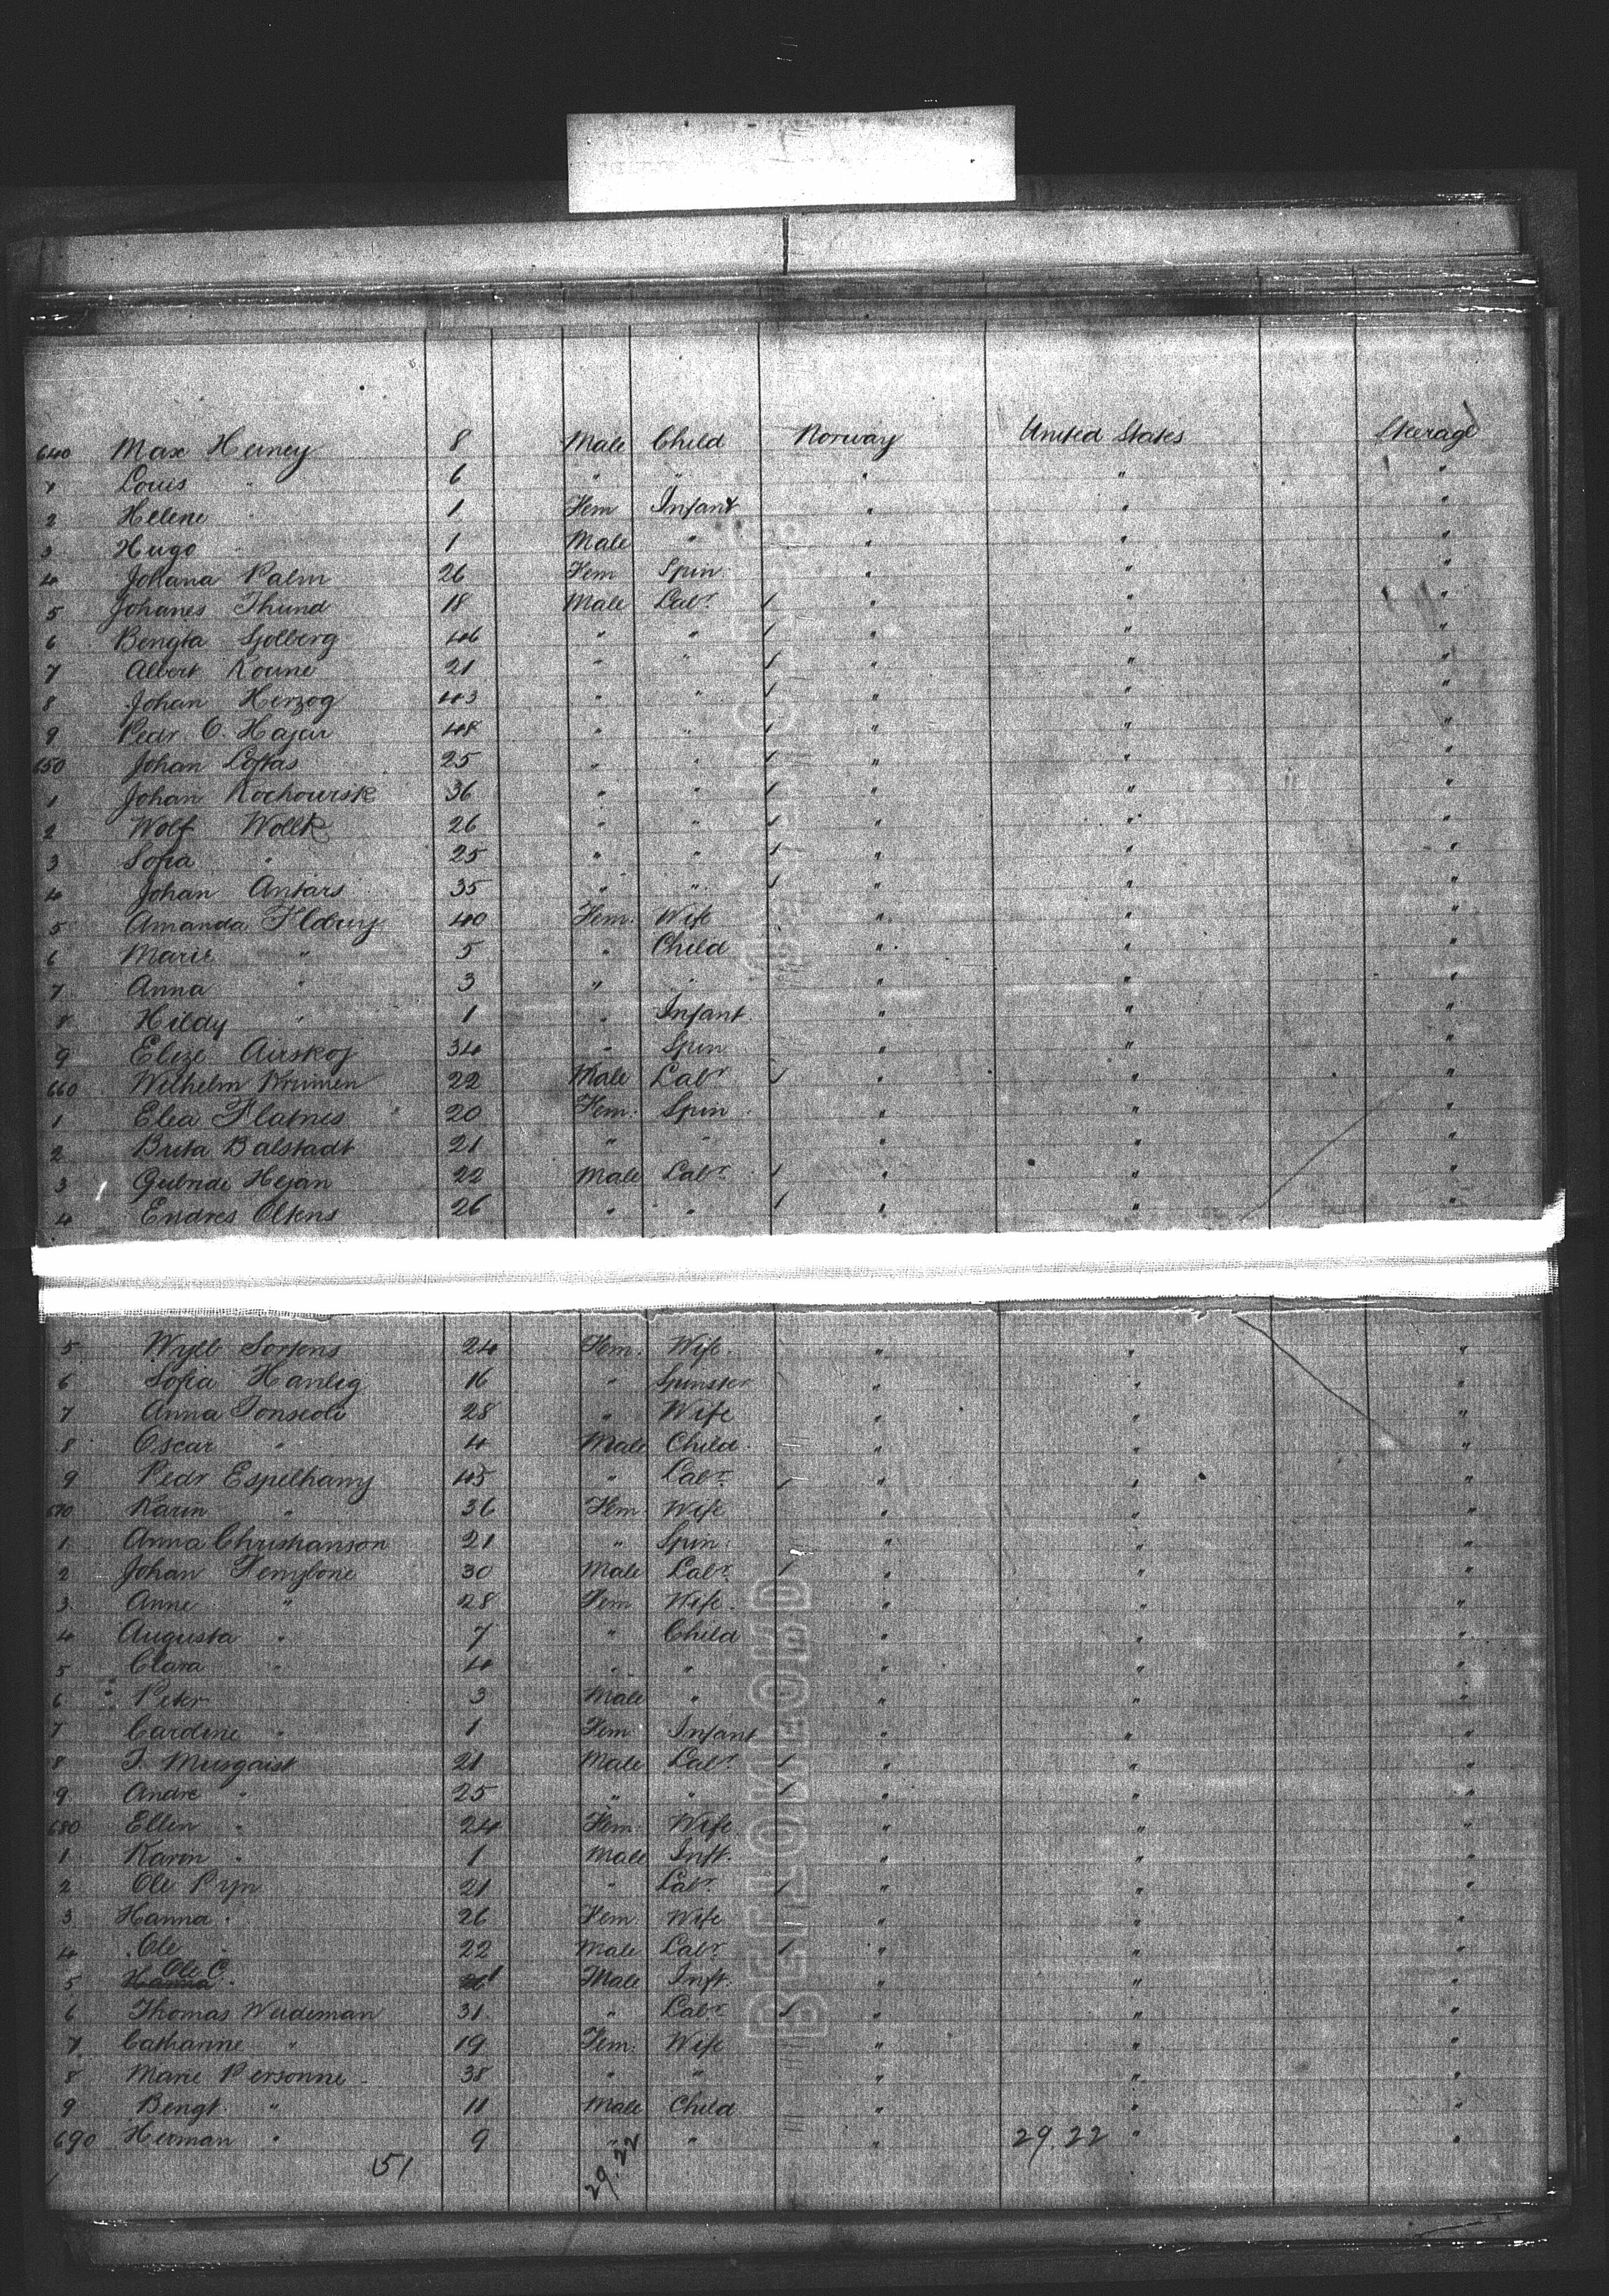 640 Max Heiney 8 Male Child Norway United States Steerage
1 Louis " 6 " " " " "
2 Helene " 1 Fem Infant " " "
3 Hugo " 1 Male " " " "
4 Johana Palm 26 Fem Spin " " "
5 Johanes Thund 18 Male Labr / " " "
6 Bengta Sjolberg 46 " " / " " "
7 Albert Koune 21 " " / " " "
8 Johan Herzog 43 " " / " " "
9 Pedr. O. Hajar 48 " " / " " "
650 Johan Loftas 25 " " / " " "
1 Johan Kochowrsk 36 " " / " " "
2 Wolf Wollk 26 " " / " " "
3 Sofia " 25 " " / " " "
4 Johan Antars 35 " " / " " "
5 Amanda 40 Fem. Wife " " "
6 Marie " 5 " Child " " "
7 Anna " 3 " " " " "
8 Hildy " 1 " Infant " " "
9 Elize Auskoj 34 " Spin " " "
660 Wilhelm 22 Male Labr / " " "
1 Elea Flatnes 20 Fem. Spin " " "
2 Brita Balstadt 21 " " " " "
3 Gubride Hejan 22 Male Labr / " " "
4 Endres Olsens 26 " " / " " "
5 24 Fem. Wife " " "
6 Sofia Hanlig 16 " Spinster " " "
7 Anna Tonseoli 28 " Wife " " "
8 Oscar " 4 Male Child " " "
9 Pedr Espelhamy 45 " Labr / " " "
670 Karin " 36 Fem Wife " " "
1 Anna Christianson 21 " Spin " " "
2 Johan Temylone 30 Male Labr / " " "
3 Anne " 28 Fem Wife " " "
4 Augusta " 7 " Child " " "
5 Clara " 4 " " " " "
6 Peter " 3 Male " " " "
7 Caroline " 1 Fem Infant " " "
8 J. Musgaist 21 Male Labr / " " "
9 Andre " 25 " " / " " "
680 Ellen " 24 Fem Wife " " "
1 Karin " 1 Male Inft. " " "
2 Ole Pyn 21 " Labr / " " "
3 Hanna " 26 Fem Wife " " "
4 Ole " 22 Male Labr / " " "
5 Ole C. " 1 Male Inft. " " "
6 Thomas Weideman 31 " Labr / " " "
7 Catharine " 19 Fem. Wife " " "
8 Marie Personne 38 " " " " "
9 Bengt " 11 Male Child " " "
690 Herman " 9 " " " 29.22 " "
51 29.22
BEFLOWEOHD